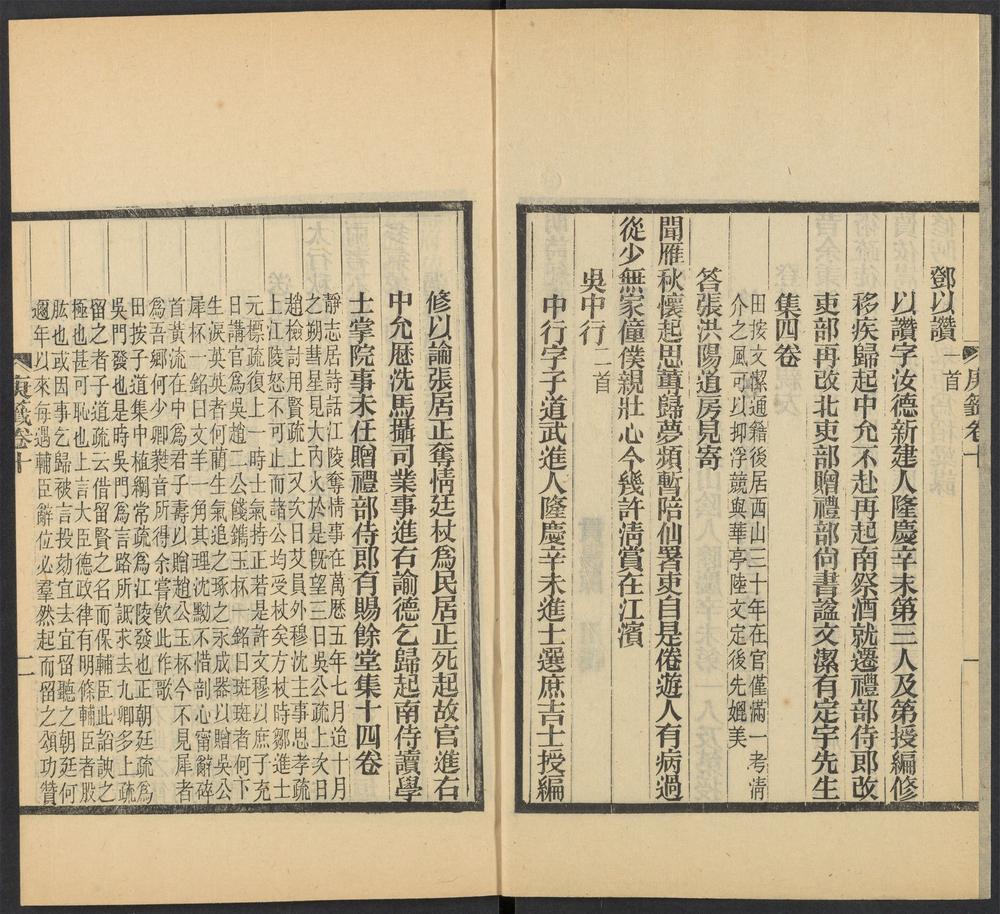 庚籤卷十
一
鄧以讚一首
以讚字汝德新建人隆慶辛未第三人及第授編修
移疾歸起中允不赴再起南祭酒就遷禮部侍郎改
吏部再改北吏部贈禮部尚書諡文潔有定宇先生
集四卷
田按文潔通籍後居西山三十年在官僅滿一考清
介之風可以抑浮競與華亭陸文定後先媲美
答張洪陽道房見寄
聞雁秋懷起思蓴歸夢頻暫陪仙署吏自是倦遊人有病過
從少無家僮僕親壯心今幾許清賞在江濱
吳中行二首
中行字子道武進人隆慶辛未進士選庶吉士授編
修以論張居正奪情廷杖爲民居正死起故官進右
中允歷洗馬攝司業事進右諭德乞歸起南侍讀學
士掌院事未任贈禮部侍郎有賜餘堂集十四卷
靜志居詩話江陵奪情事在萬歷五年七月迨十月
之朔彗星見大內火於是旣望三日吳公疏上次日
趙檢討用賢疏上又次日艾員外穆沈主事思孝疏
上江陵怒不可止而諸公均受杖矣方杖時鄒進士
元標疏復上一時士氣持正若是許文穆以庶子充
日講官爲吳趙二公餞鐫玉杯一銘曰斑斑者何下
生淚英英者何藺生氣追之琢之永成器以贈吳公
犀杯一銘曰文羊一角其理沈黝不惜剖心甯辭碎
首黃流在中爲君子壽以贈趙公玉杯今不見犀者
爲吾鄉何少卿蕤音所得余嘗飲此作歌
田按子道集中植綱常疏爲江陵發也正朝廷疏爲
吳門發也是時吳門爲言路所詆求去九卿多上疏
留之者子道疏云借留賢之名而保輔臣此諂諛之
極也甚可恥也上言大臣德政律有明條輔臣者股
肱也或因事乞歸被言投劾宜去宜留聽之朝廷何
邇年以來每遇輔臣辭位必羣然起而留之頌功贊
庚籤卷十
二